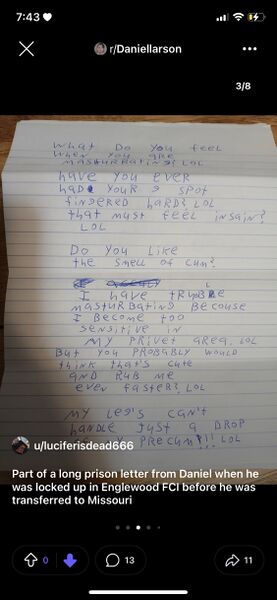 7:43
r/Daniellarson
3/8
What Do you feel
when you are
masturrbating? LOL
have you ever
had your g spot
fingered hard? LOL
that must feel insain?
LOL
Do you Like
the smell of cum?
I have truble
masturbating becouse
I become too
sensitive in
my privet area. LOL
But you probably would
think that's cute
and rub me
even faster? LOL
my leg's can't
handle just a drop
precum!!! LOL
u/luciferisdead666
Part of a long prison letter from Daniel when he
was locked up in Englewood FCI before he was
transferred to Missouri
0
13
11